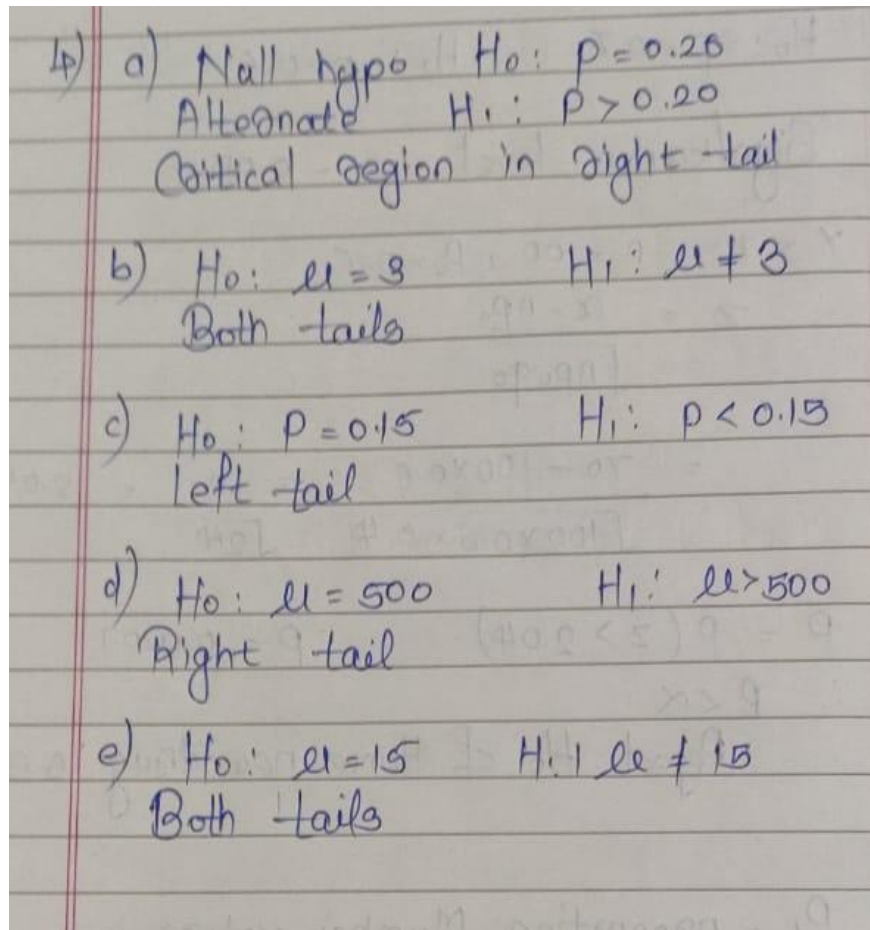 4) a) Null hypo H₀: P = 0.20
Alternate H₁: P > 0.20
Critical region in right tail
b) H₀: μ = 3 H₁: μ ≠ 3
Both tails
c) H₀: P = 0.15 H₁: P < 0.15
Left tail
d) H₀: μ = 500 H₁: μ > 500
Right tail
e) H₀: μ = 15 H₁: μ ≠ 15
Both tails